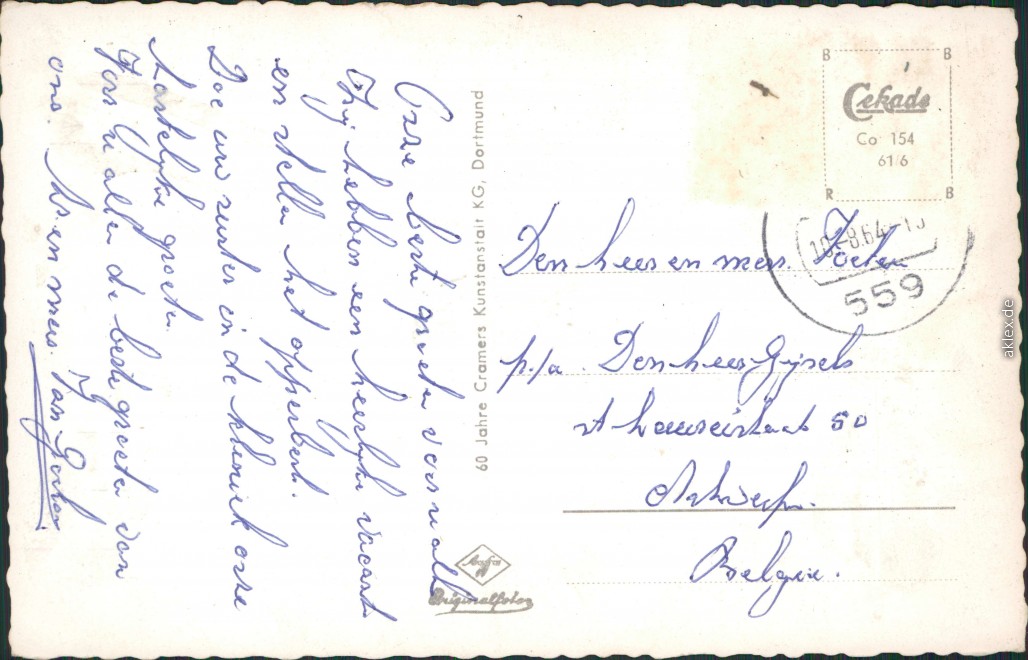 Onze beste groeten voor u allen
Wij hebben een heerlijke vacant
en stellen het opperbest.
Doe uw zuster in de kliniek onze
hartelijke groeten.
Voor u allen de beste groeten van
ons. Mr. en mevr. Van
60 Jahre Cramers Kunstanstalt KG, Dortmund
Agfa
Originalfoto
B B
Cekade
Co 154
61/6
R B
-8.64-
559
Den heer en mevr.
p/a. Den heer Gijsels
50
Antwerpen.
België.
aklex.de